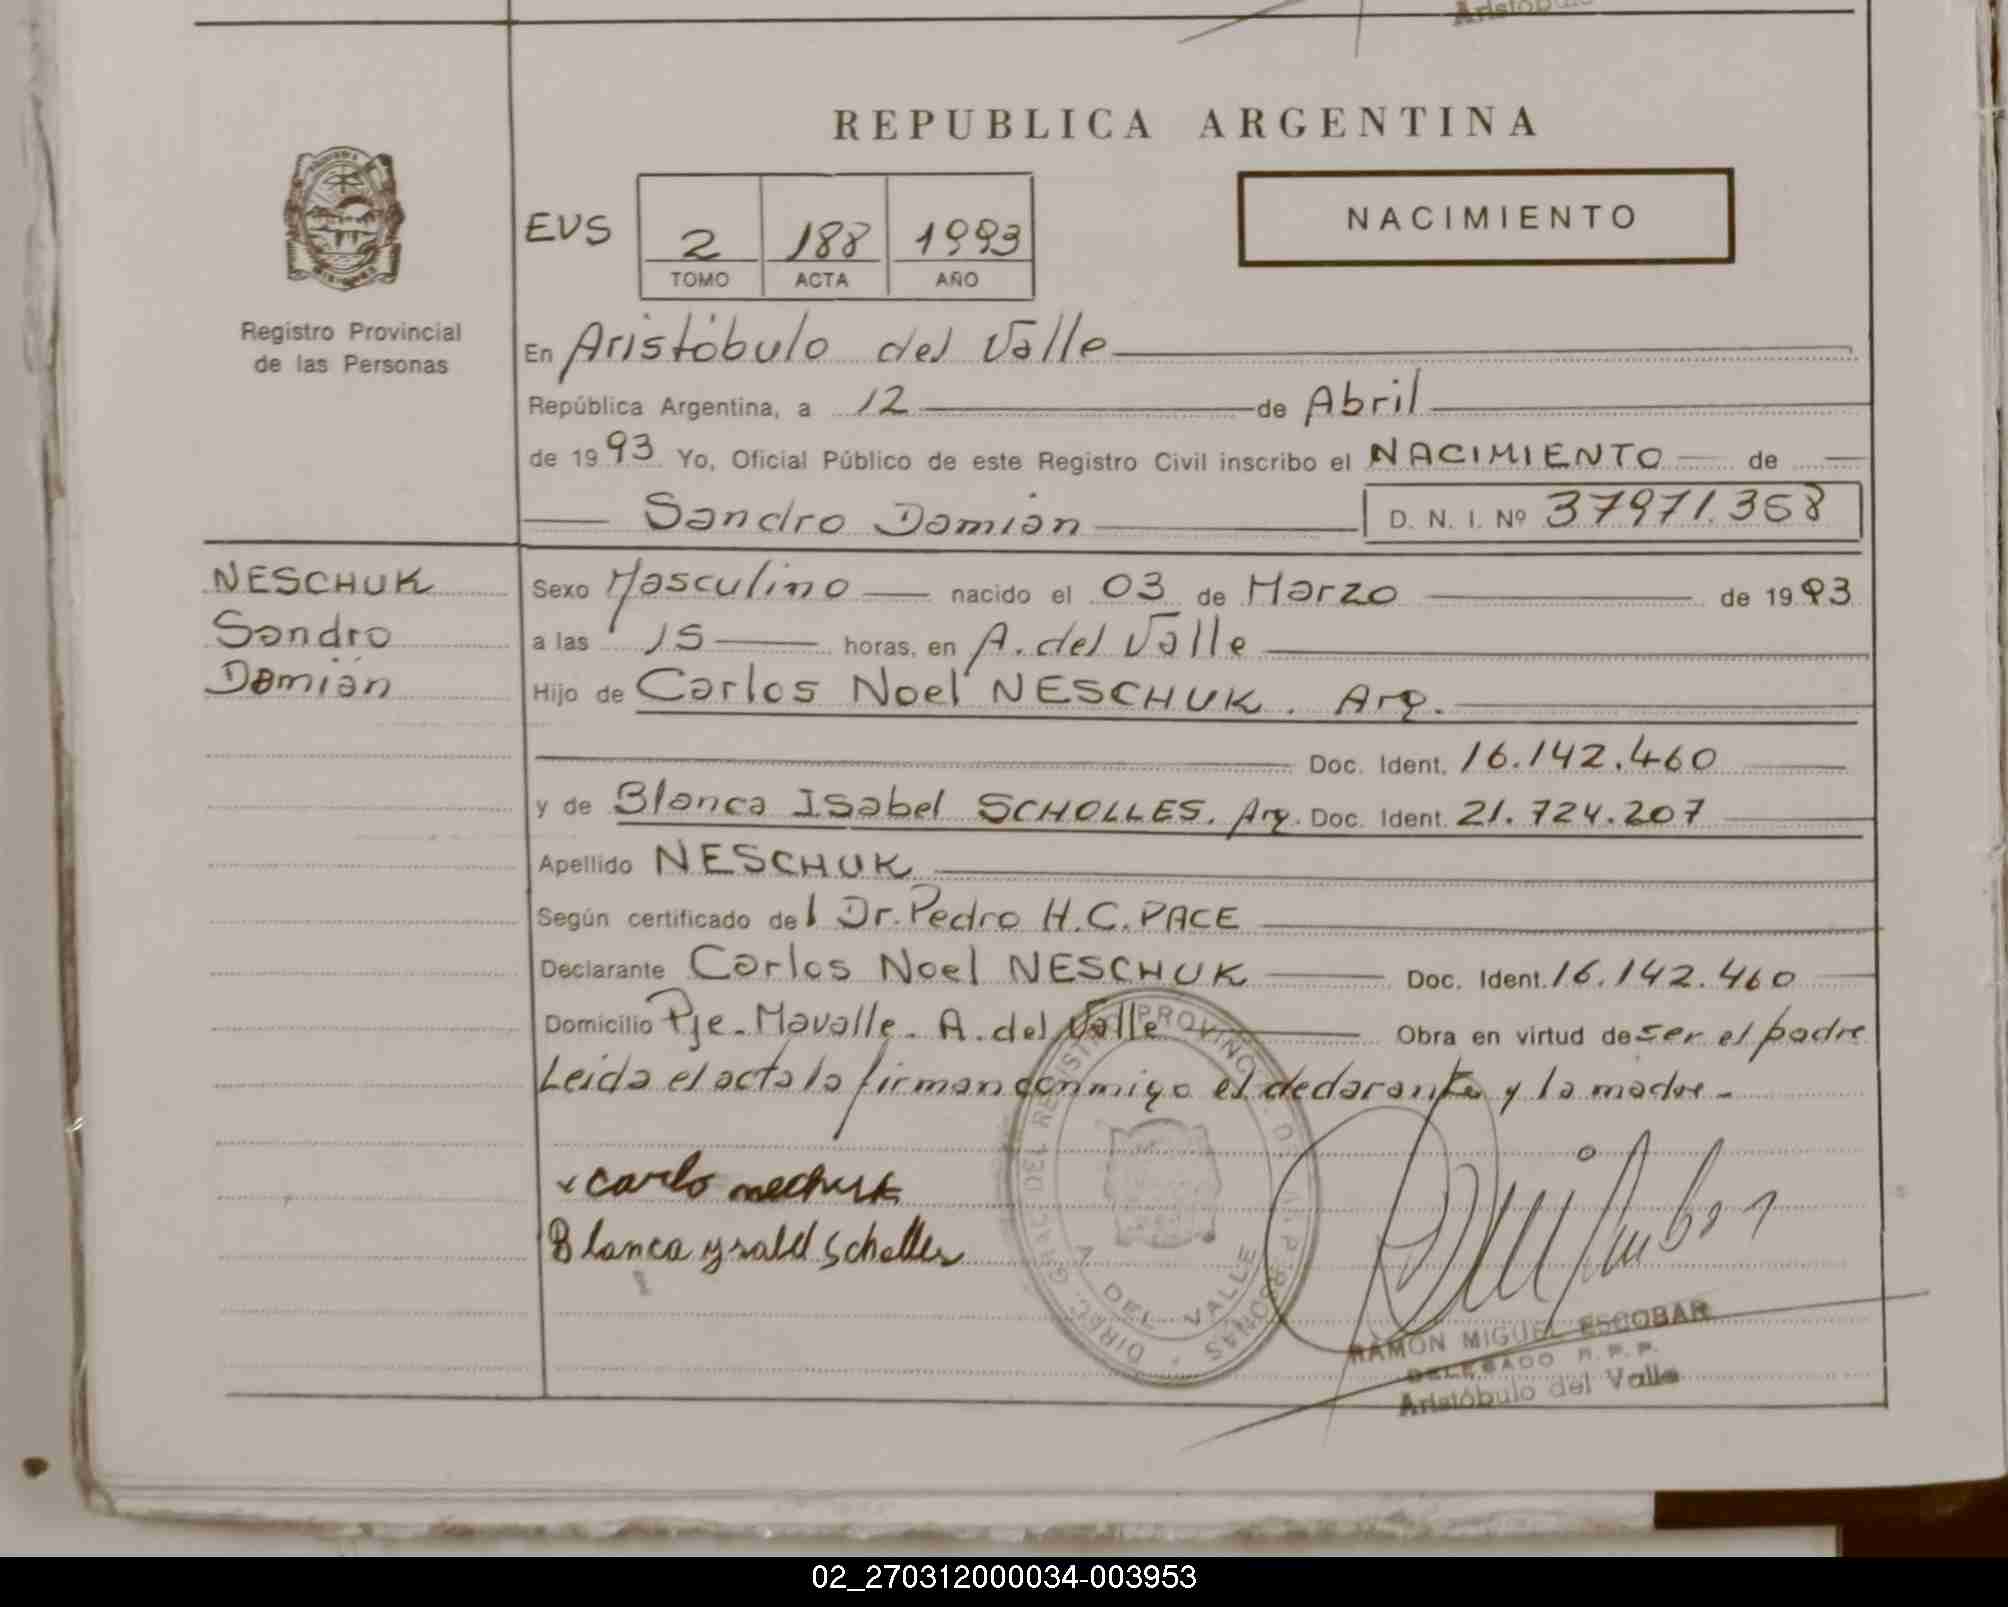 Aristóbulo
REPUBLICA ARGENTINA
EVS 2 188 1993
TOMO ACTA AÑO
NACIMIENTO
Registro Provincial
de las Personas
En Aristóbulo del Valle
República Argentina, a 12 de Abril
de 1993 Yo, Oficial Público de este Registro Civil inscribo el NACIMIENTO de
Sandro Damián D. N. I. Nº 37971.358
NESCHUK
Sandro
Damián
Sexo Masculino nacido el 03 de Marzo de 1993
a las 15 horas, en A. del Valle
Hijo de Carlos Noel NESCHUK. Arg.
Doc. Ident. 16.142.460
y de Blanca Isabel SCHOLLES. Arg. Doc. Ident. 21.724.207
Apellido NESCHUK
Según certificado del Dr. Pedro H.C. PACE
Declarante Carlos Noel NESCHUK Doc. Ident. 16.142.460
Domicilio Pje. Mavalle. A. del Valle Obra en virtud de ser el padre
Leida el acta la firman conmigo el declarante y la madre -
x carlo nechuk
Blanca ysabel Scholles
DIREC. GRAL. DEL REGISTRO PROVINC. DE PERSONAS
A. DEL VALLE
RAMON MIGUEL ESCOBAR
DELEGADO R. P. P.
Aristóbulo del Valle
02_270312000034-003953